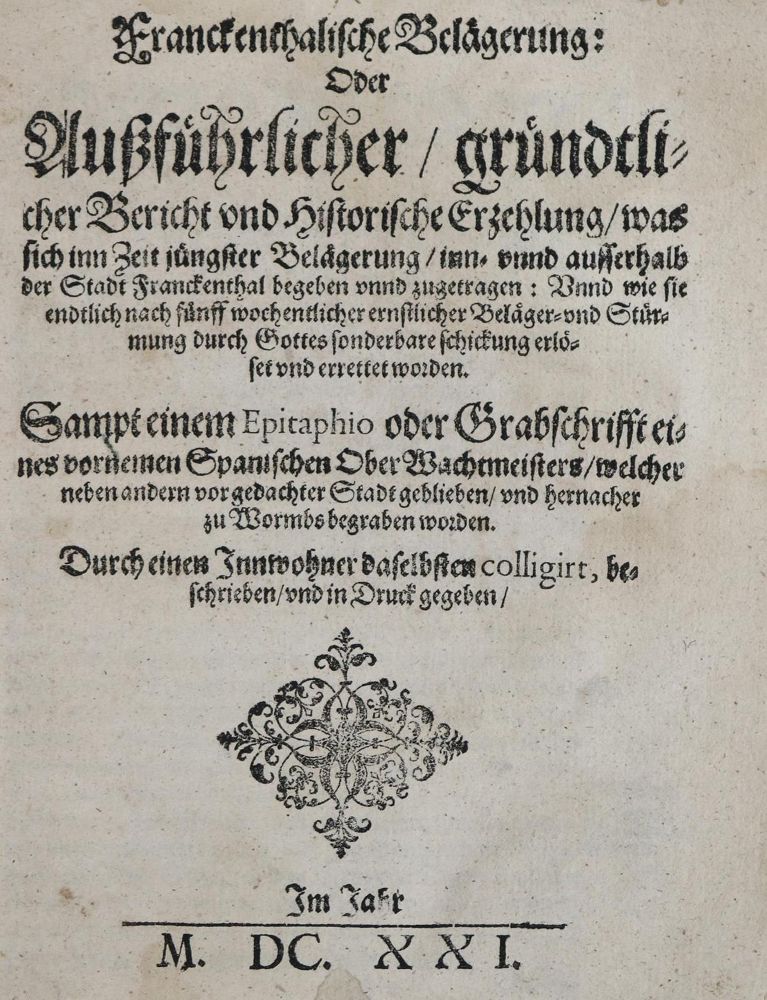 Franckenthalische Belägerung:
Oder
Außführlicher / gründtli-
cher Bericht vnd Historische Erzehlung / was
sich inn Zeit jüngster Belägerung / inn- vnnd ausserhalb
der Stadt Franckenthal begeben vnnd zugetragen : Vnnd wie sie
endtlich nach fünff wochentlicher ernstlicher Beläger- vnd Stür-
mung durch Gottes sonderbare schickung erlö-
set vnd errettet worden.
Sampt einem Epitaphio oder Grabschrifft ei-
nes vornemen Spanischen Ober Wachtmeisters / welcher
neben andern vor gedachter Stadt geblieben / vnd hernacher
zu Wormbs begraben worden.
Durch einen Innwohner daselbsten colligirt, be-
schrieben / vnd in Druck gegeben /
Im Jahr
M. DC. XXI.